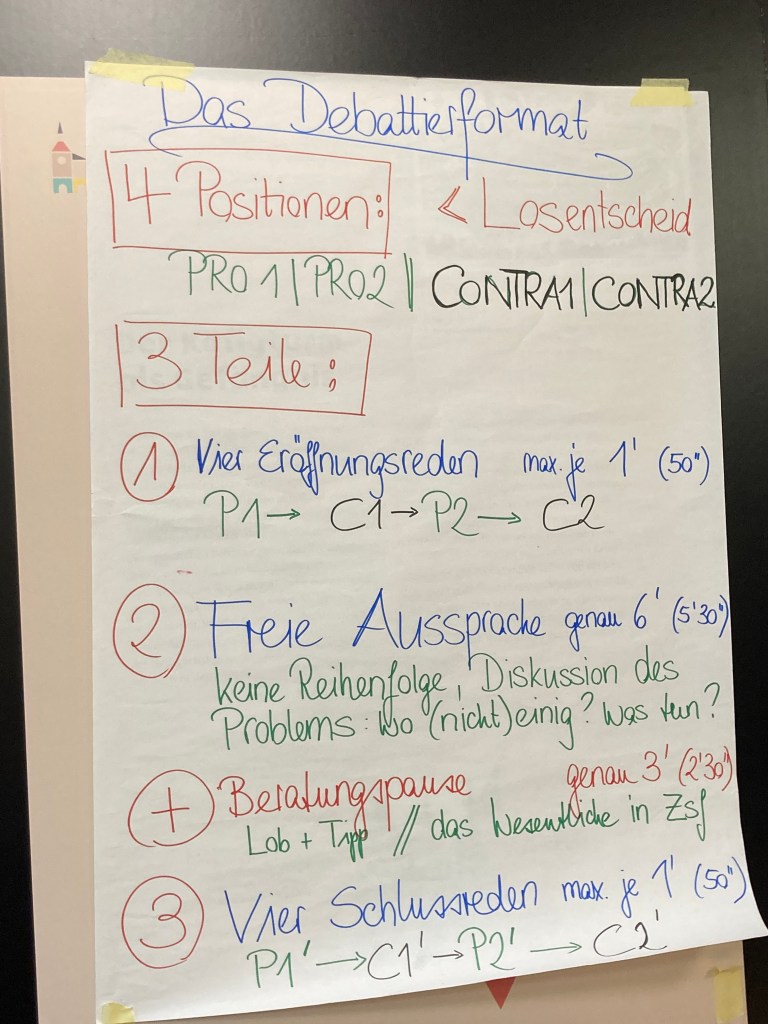 Das Debattierformat
4 Positionen: < Losentscheid
PRO 1 | PRO2 || CONTRA1 | CONTRA2
3 Teile:
1 Vier Eröffnungsreden max. je 1' (50")
P1 → C1 → P2 → C2
2 Freie Aussprache genau 6' (5'30")
keine Reihenfolge, Diskussion des
Problems: wo (nicht) einig? Was tun?
+ Beratungspause genau 3' (2'30")
Lob + Tipp // das Wesentliche in Zsf
3 Vier Schlussreden max. je 1' (50")
P1' → C1' → P2' → C2'